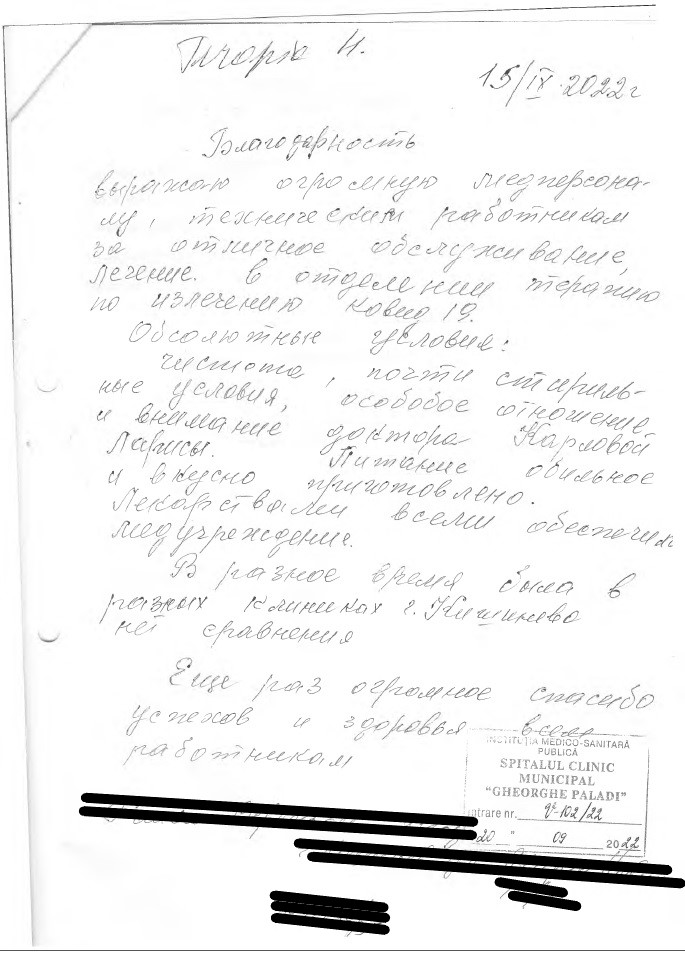 15/IX-2022г
Благодарность
выражаю огромную медперсона-
лу, техническим работникам
за отличное обслуживание,
лечение. в отделении терапию
по излечению ковид 19.
Обсолютные условия:
чистота, почти стириль-
ные условия, особобое отношение
и внимание доктора Карловой
Ларисы. Питание обильное
и вкусно приготовлено.
Лекарствами всеми обеспечил
медучреждение.
В разное время была в
разных клиниках г. Кишинево
нет сравнения
Еще раз огромное спасибо
успехов и здоровья всем
работникам
INSTITUȚIA MEDICO-SANITARĂ
PUBLICĂ
SPITALUL CLINIC
MUNICIPAL
"GHEORGHE PALADI"
Intrare nr. 92-102/22
20 " 09 2022